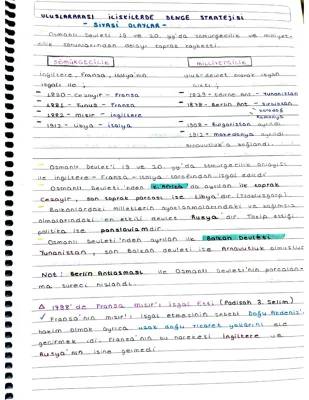 ULUSLARARASI İLİŞKİLERDE DENGE STRATEJİSİ
- SİYASİ OLAYLAR -
Osmanlı Devleti 19 ve 20. yy'da sömürgecilik ve milliyet-
çilik sorunlarından dolayı toprak kaybetti
SÖMÜRGECİLİK
MİLLİYETÇİLİK
İngiltere, Fransa, İtalya'nın
işgali ile ;
Ulus devlet olarak
- 1830 - Cezayir - Fransa
- 1829 - Edirne Ant. - Yunanistan
- 1881 - Tunus - Fransa
- 1878 - Berlin Ant. - Sırbistan
Karadağ
Romanya
- 1882 - Mısır - İngiltere
- 1912 - Libya - İtalya
- 1908 - Bulgaristan ayrıldı
- 1912 - Makedonya ayrıldı
Arnavutluk'a bağlandı
- Osmanlı Devleti 19 ve 20. yy'da sömürgecilik anlayışı
ile İngiltere - Fransa - İtalya tarafından işgal edildi
- Osmanlı Devleti'nden K. Afrika'da ayrılan ilk toprak
Cezayir, son toprak parçası ise Libya'dır (Trablusgarp)
- Balkanlardaki milletlerin ayaklanmalarındaki ve bağımsız
olmalarındaki en etkili devlet Rusya'dır. Takip ettiği
politika ise panslavizmdir
- Osmanlı Devleti'nden ayrılan ilk Balkan Devleti
Yunanistan, son Balkan devleti ise Arnavutluk olmuştur
Not: Berlin Antlaşması ile Osmanlı Devleti'nin parçalan-
ma süreci hızlandı
△ 1798'de Fransa Mısır'ı İşgal Etti (Padişah 3. Selim)
✓ Fransa'nın Mısır'ı işgal etmesinin sebebi Doğu Akdeniz'e
hakim olmak ayrıca uzak doğu ticaret yollarını ele
geçirmek idi. Fransa'nın bu hareketi İngiltere ve
Rusya'nın işine gelmedi